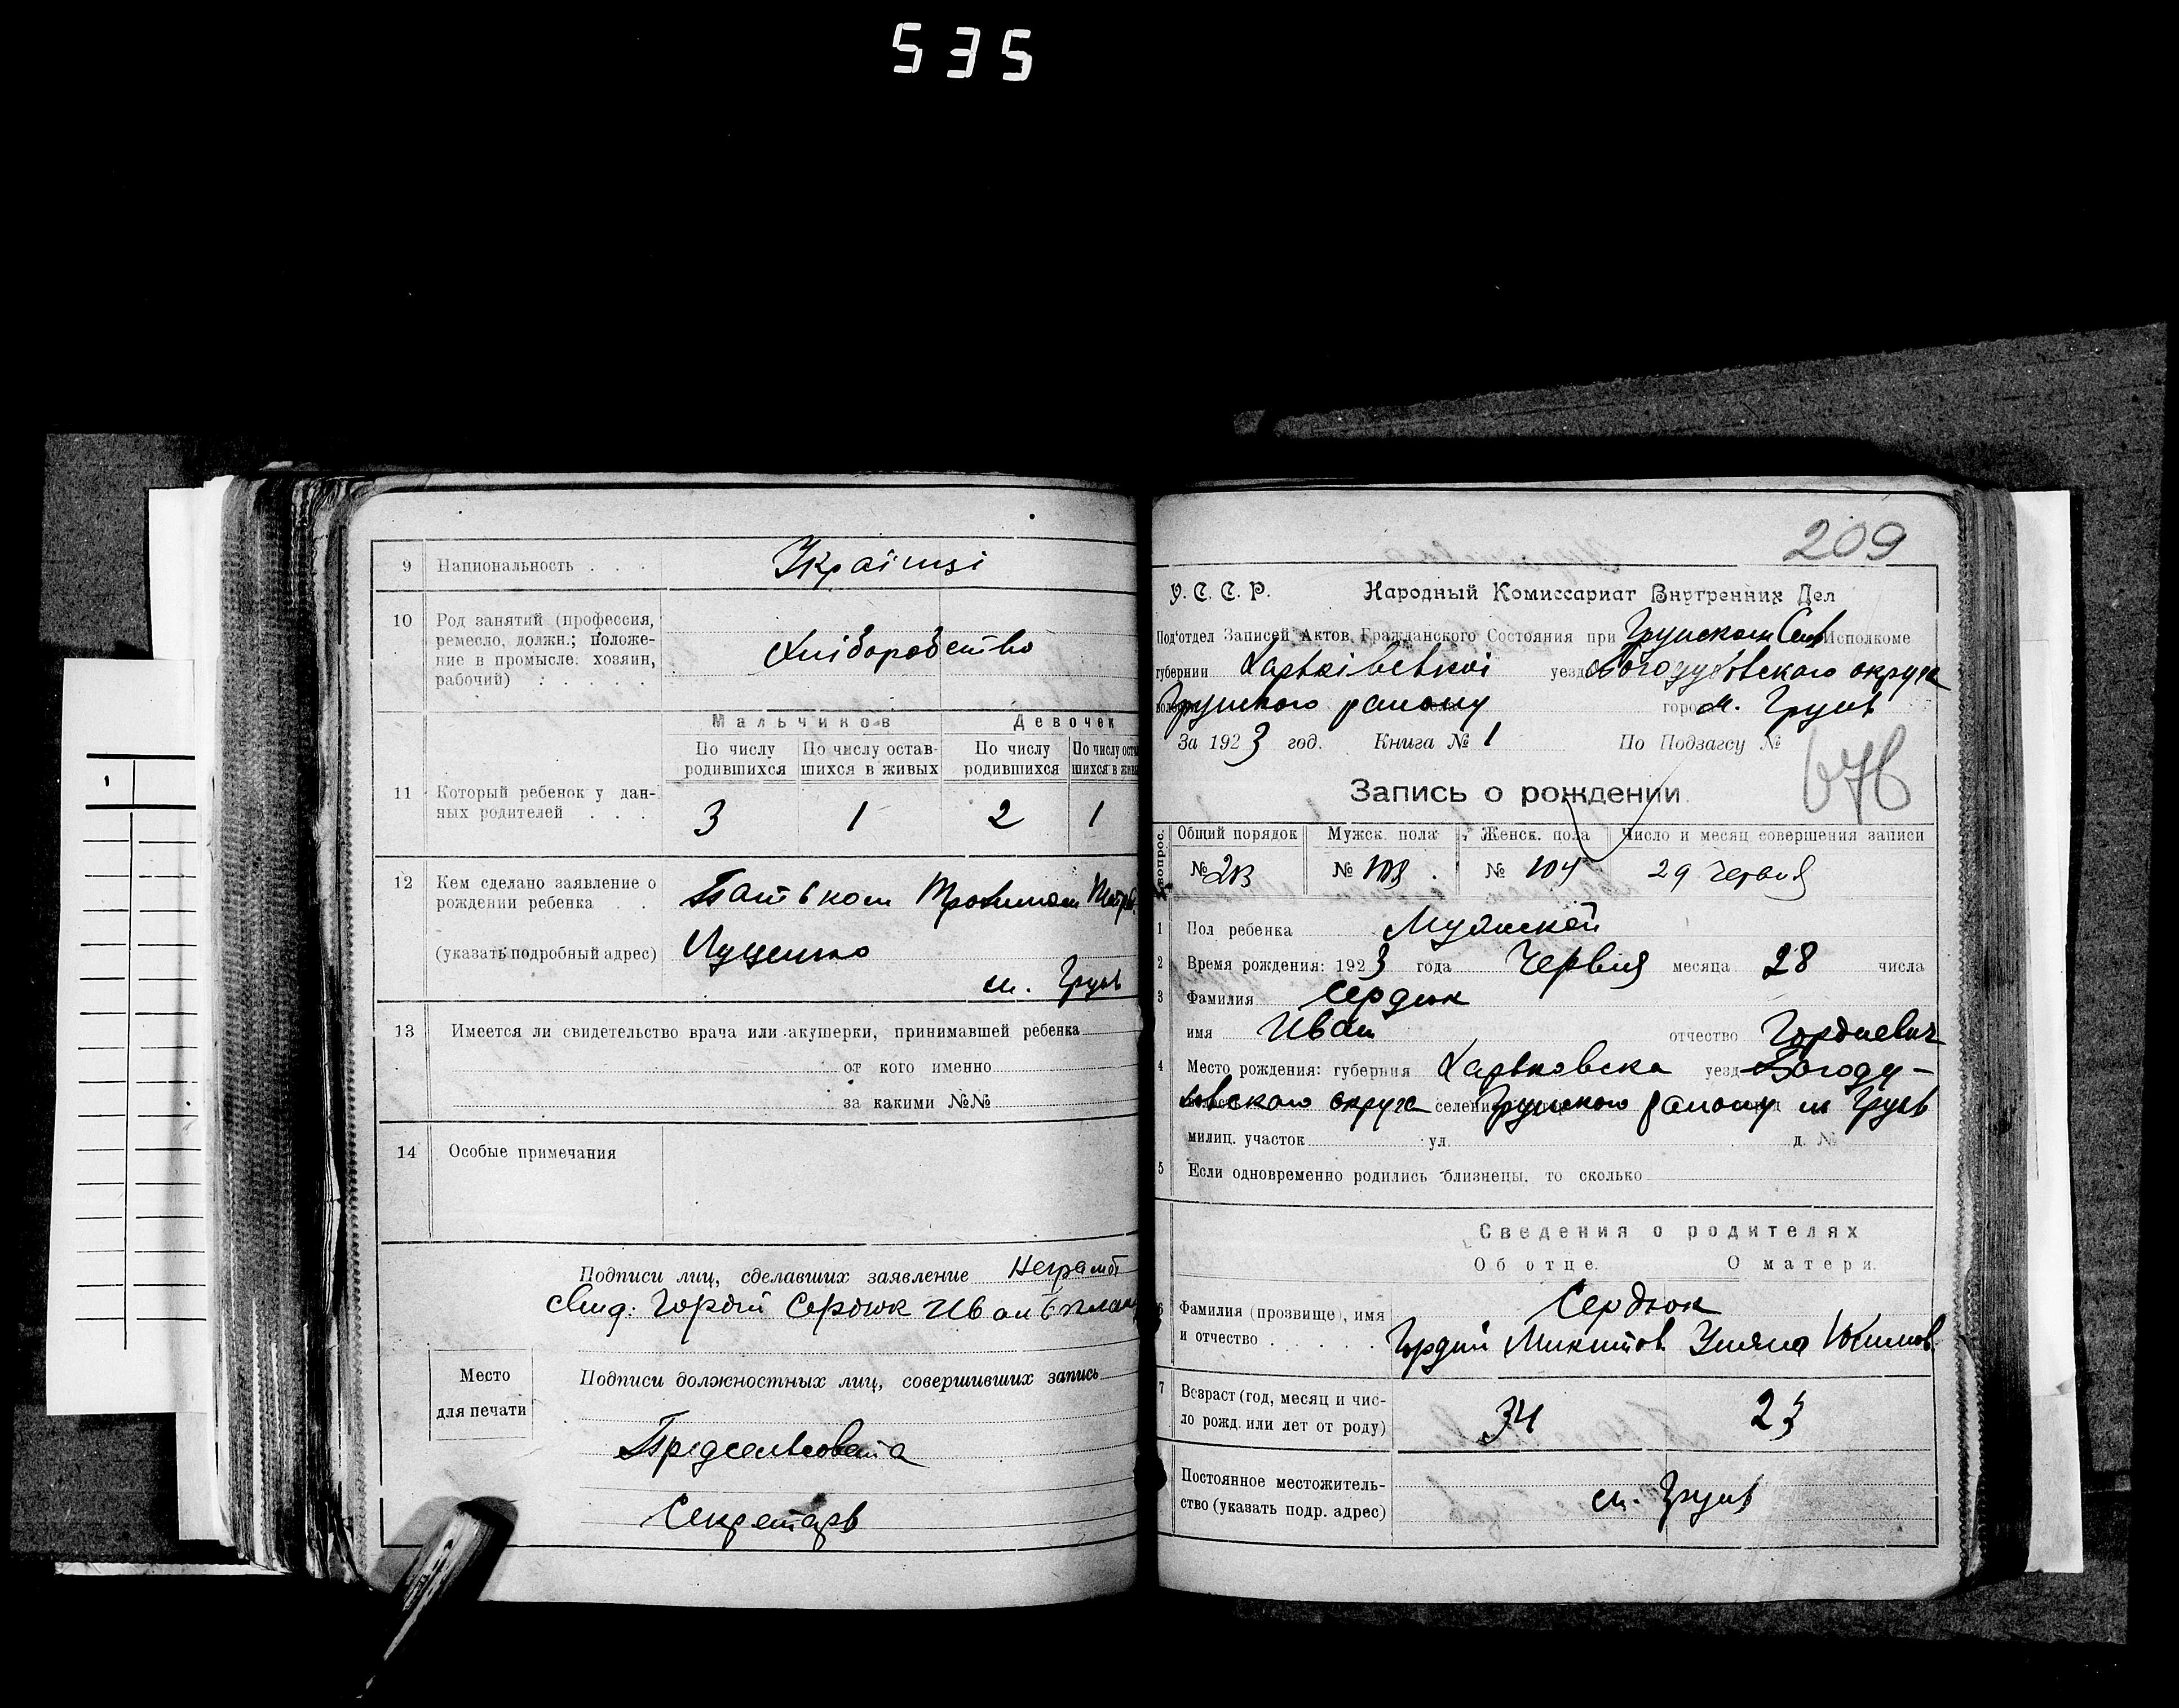 535
9 Национальность . . . Українці
10 Род занятий (профессия,
ремесло, должн.; положе-
ние в промысле: хозяин,
рабочий) . . . . .
Хліборобство
Мальчиков Девочек
По числу родившихся По числу остав-шихся в живых По числу родившихся По числу оста шихся в жив
11 Который ребенок у дан-
ных родителей . . .
3 1 2 1
12 Кем сделано заявление о
рождении ребенка . . Батьком Трохимом
(указать подробный адрес) Луценко
м. Грунь
13 Имеется ли свидетельство врача или акушерки, принимавшей ребенка
от кого именно
за какими №№
14 Особые примечания
Подписи лиц, сделавших заявление Неграмот
Свид: Гордій Сердюк Иван
Место
для печати
Подписи должностных лиц, совершивших запись
Предсельсовета
Секретарь
209
У. С. С. Р. Народный Комиссариат Внутренних Дел
Под'отдел Записей Актов Гражданского Состояния при Грунском Исполкоме
губернии Харьківської уезд Богодухівского округа
Грунского району город м. Грунь
За 1923 год. Книга № 1 По Подзагсу №
676
Запись о рождении
Общий порядок Мужск. пола Женск. пола Число и месяц совершения записи
№ 213 № 109 № 104 29 Червня
1 Пол ребенка Мужской
2 Время рождения: 1923 года Червня месяца 28 числа
3 Фамилия Сердюк
имя Иван отчество Гордиевич
4 Место рождения: губерния Харьковска уезд Богоду-
ховского округа селение Грунского району м Грунь
милиц. участок ул. д. №
5 Если одновременно родились близнецы, то сколько
Сведения о родителях
Об отце. О матери.
6 Фамилия (прозвище), имя Сердюк
и отчество . . . . . Гордий Микитов Уляна Юхимов.
7 Возраст (год, месяц и чис-
ло рожд. или лет от роду) 34 23
Постоянное местожитель-
ство (указать подр. адрес) м. Грунь